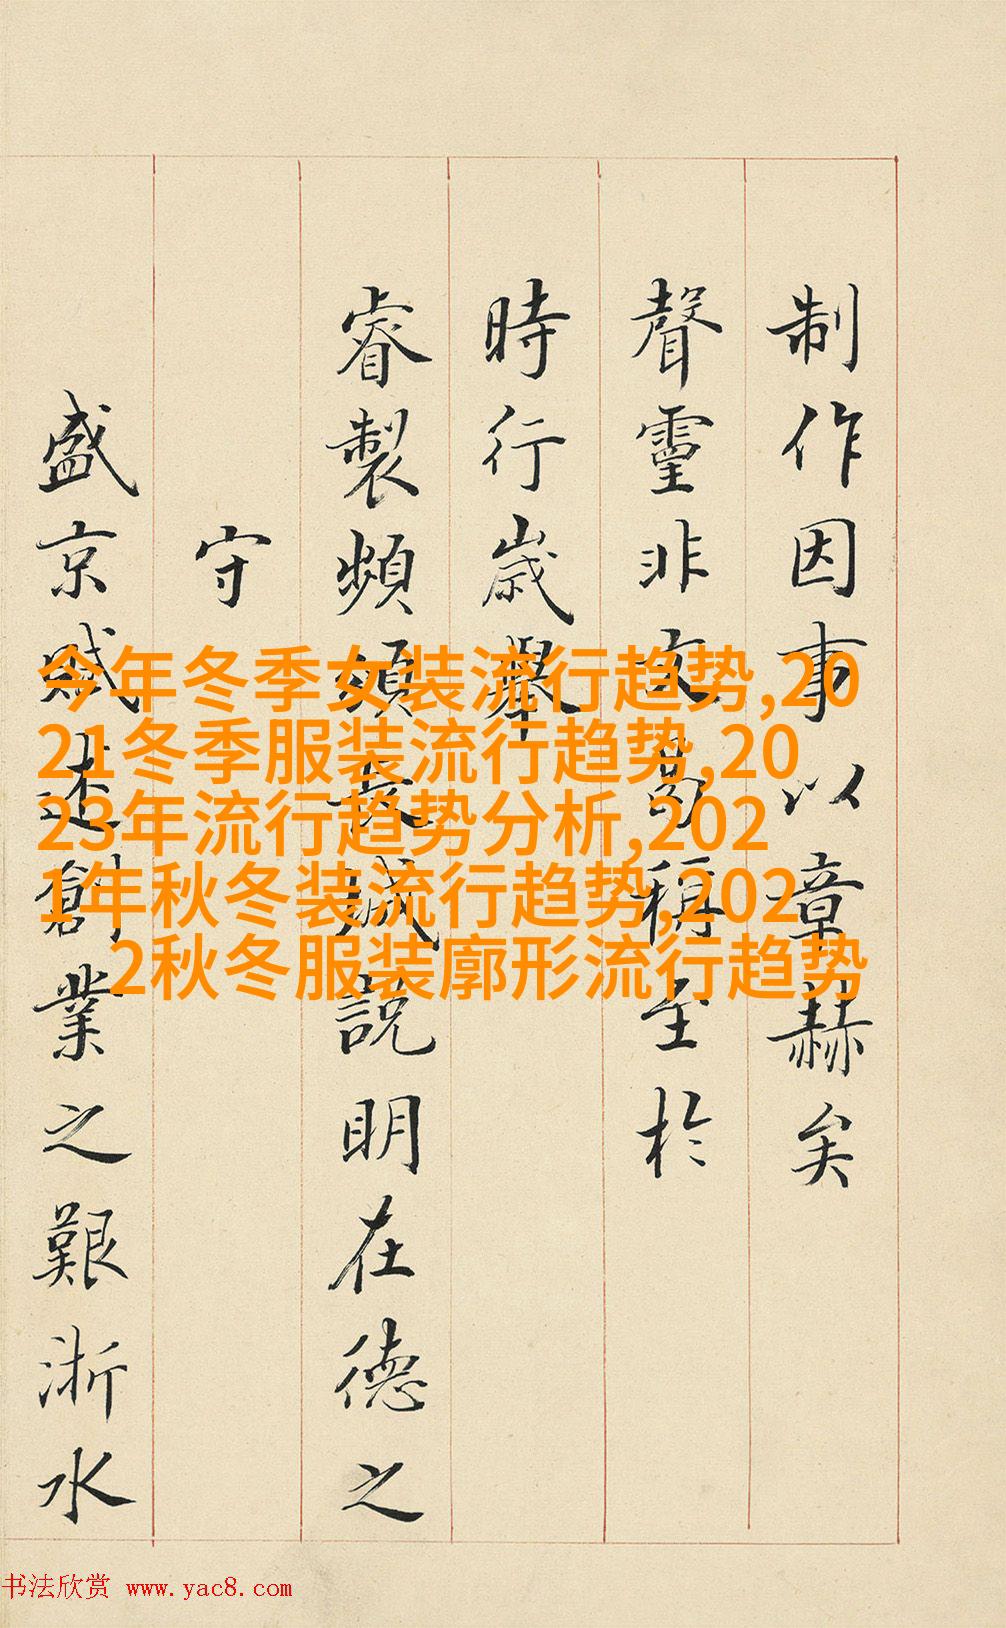 制作因事以章赫矣
聲靈非文曷稱至於
時行歲舉
睿製頻頒誠說明在德之
守
盛京賦述創業之艱浙水
今年冬季女装流行趋势,20
21冬季服装流行趋势,20
23年流行趋势分析,202
1年秋冬装流行趋势,202
2秋冬服装廓形流行趋势
书法欣赏 www.yac8.com